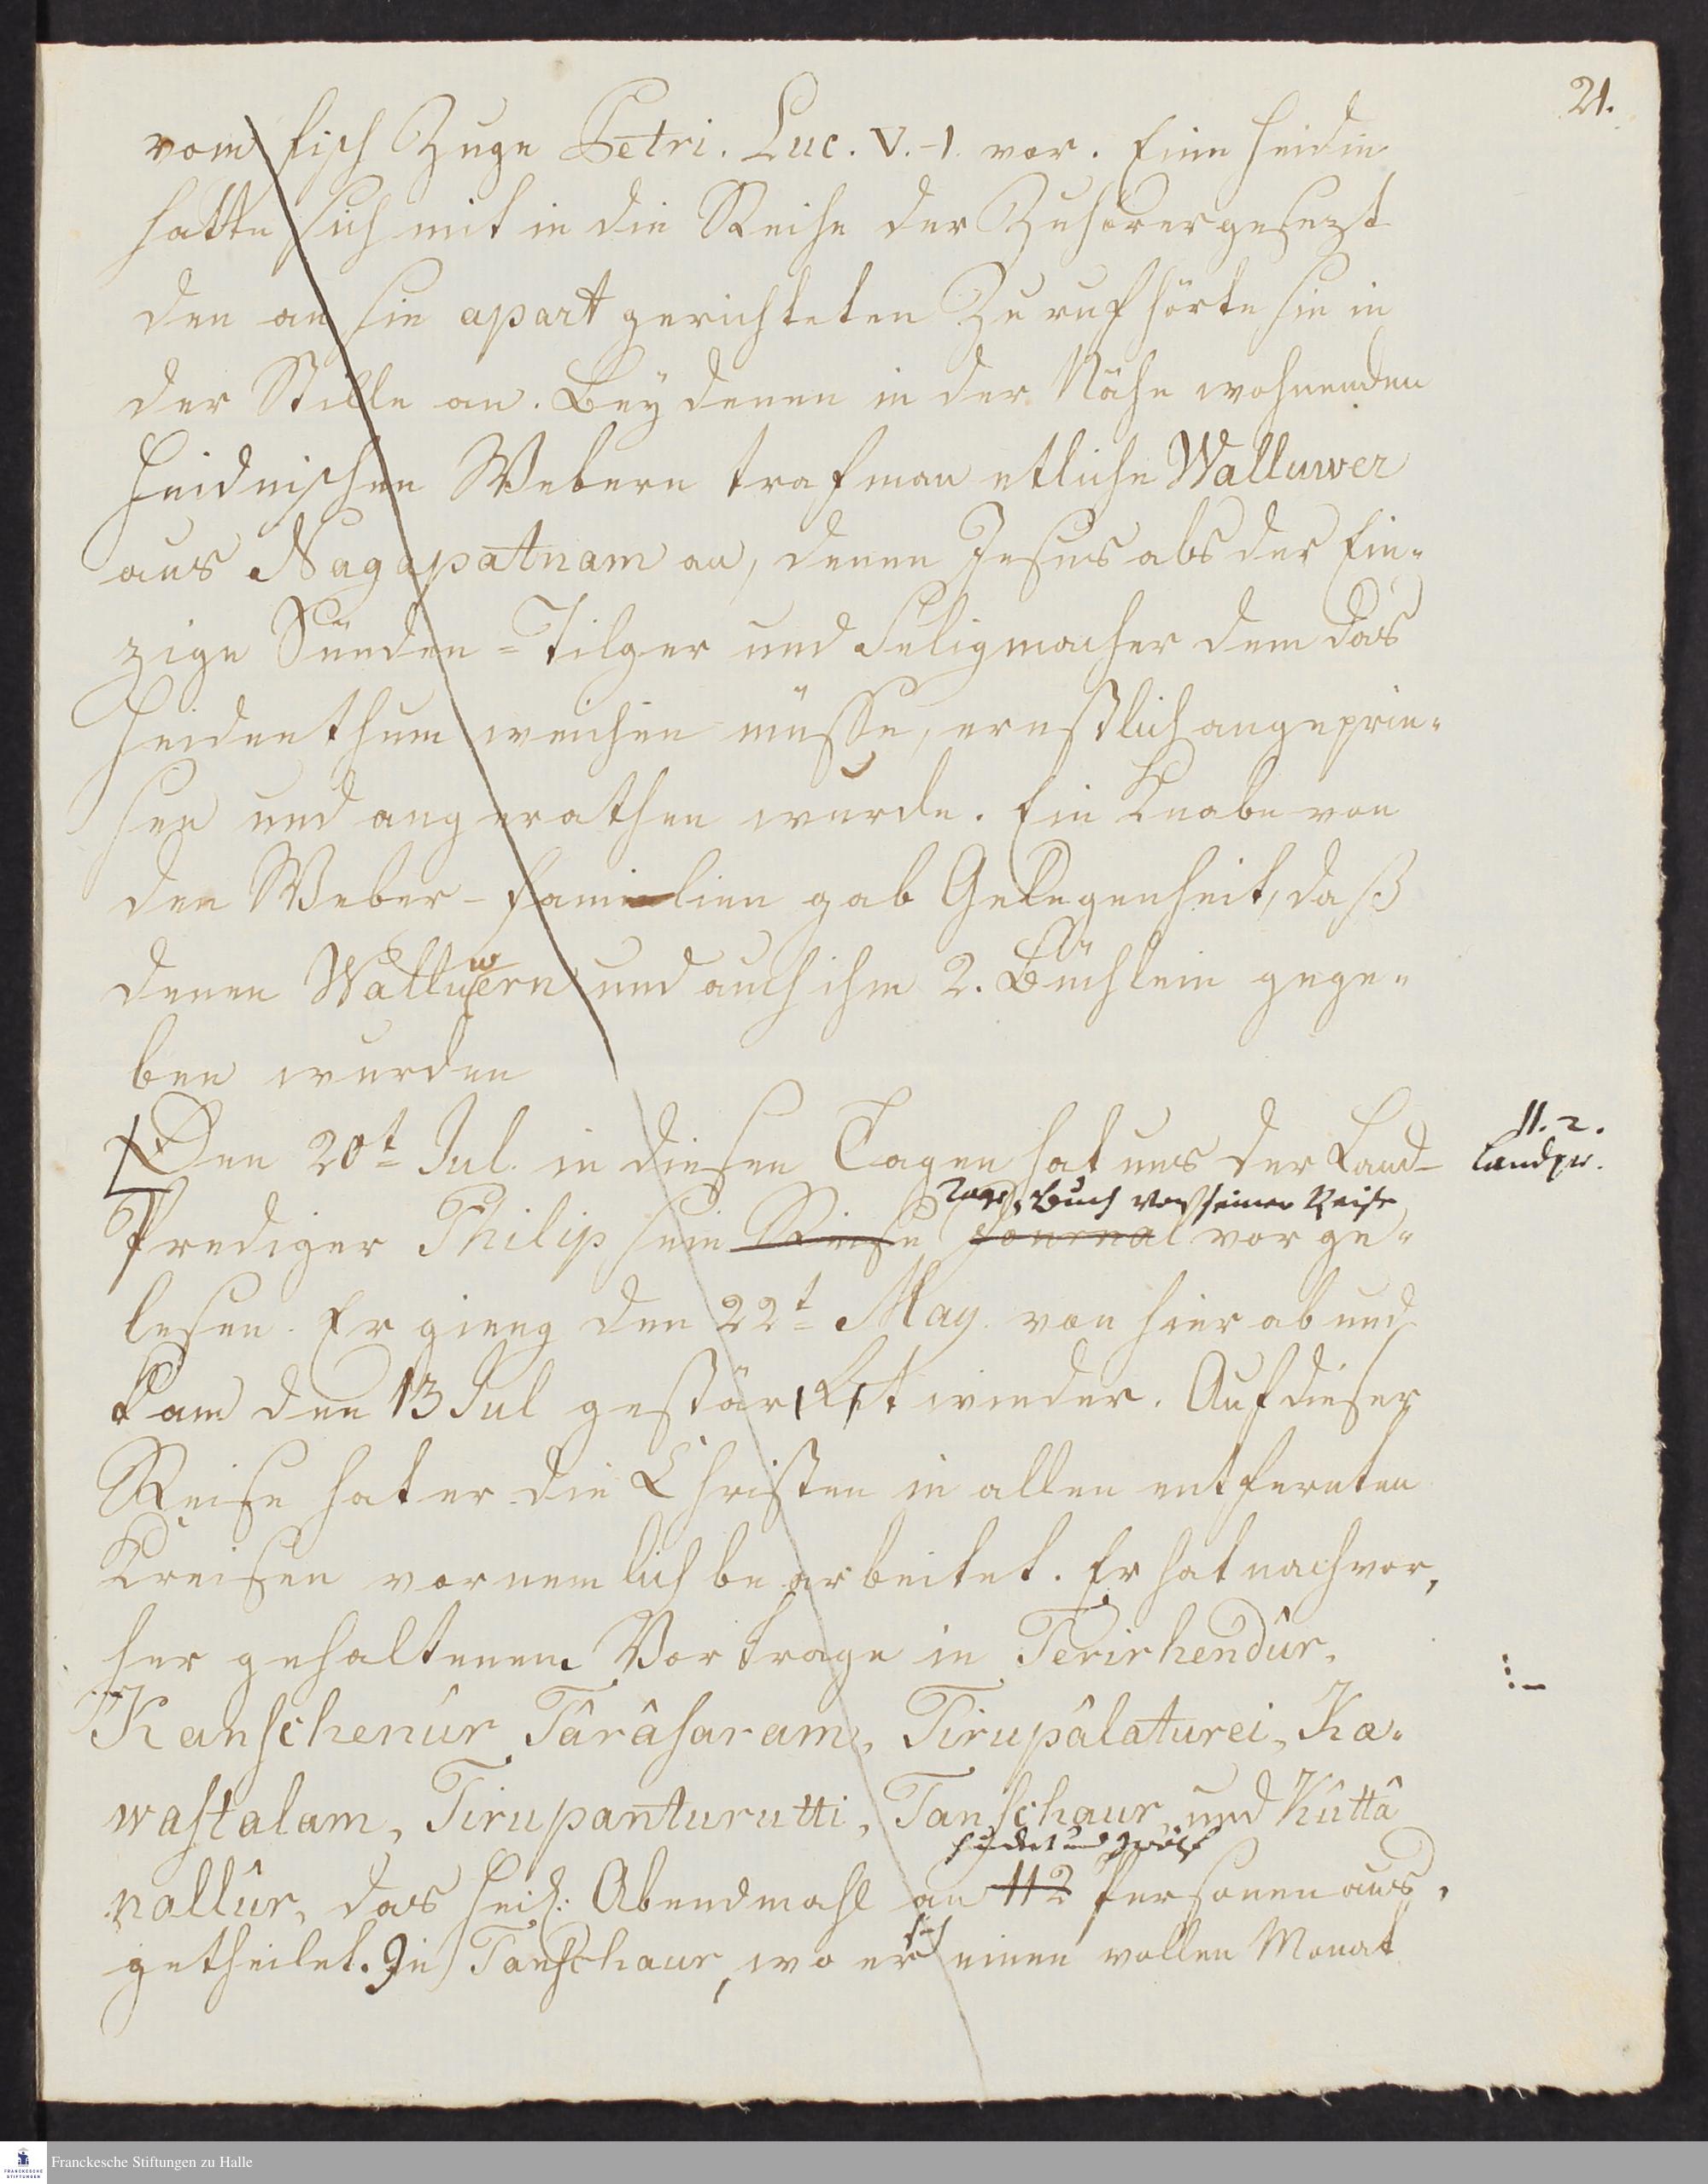 21.
vom Fisch Zuge Petri. Luc. V.-1. vor. Eine Heidin
hatte sich mit in die Reihe der Zuhörer gesezt
den an sie apart gerichteten Zuruf hörte sie in
der Stille an. Bey denen in der Nähe wohnenden
Heidnischen Webern traf man etliche Walluwer
aus Nagapatnam an, denen Jesus als der Ein-
zige Sünden-Tilger und Seligmacher dem das
Heidenthum weichen müsse, ernstlich angeprie-
sen und angerathen wurde. Ein Knabe von
den Weber-Familien gab Gelegenheit, daß
denen Walluwern und auch ihm 2. Büchlein gege-
ben wurden
[Den 20t Jul. in diesen Tagen hat uns der Land-
II. 2.
Landpr.
Tage-Buch von seiner Reise
Prediger Philip sein Reise Journal vor ge-
lesen. Er gieng den 22t May. von hier ab und
kam den 13 Jul gestärkt wieder. Auf dieser
Reise hat er die Christen in allen entfernten
Kreisen vornemlich bearbeitet. Er hat nach vor,
her gehaltenem Vortrage in Terirhendûr,
:-
Kanschenûr Târâsaram, Tirupâlaturei, Ka-
wastalam, Tirupanturutti, Tanschaur und Kûttâ
hundert und zwölf
nallûr, das Heil: Abendmahl an 112 Personen aus,
getheilet. In Tanschaur, wo er sich einen vollen Monat
Franckesche Stiftungen zu Halle
FRANCKESCHE STIFTUNGEN